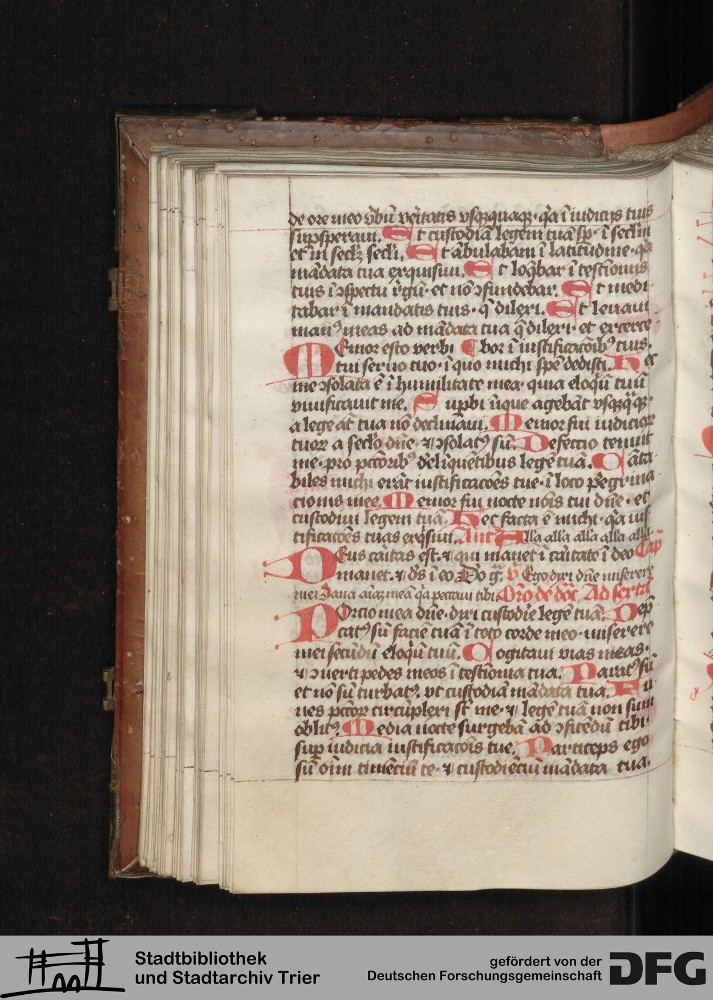 de ore meo v̄bū veritatis vsq̄quaq̨· q̄a ī iudicijs tuis
supsperaui. Et custodiā legem tuā sp̄· ī secl̄m
et in secl̄ȝ secl̄i. Et ābulabam ī latitudine· q̄a
mādata tua exquisiui. Et loq̄bar ī testīoniis
tuis ī ɔspectu r̄gū· et nō ɔfundebar. Et medi
tabar ī mandatis tuis· q̄ dilexi. Et leuaui
manꝰ meas ad mādata tua q̄ dilexi· et exerce
Memor esto verbi bor ī iustificac̄oībꝰ tuis.
tui seruo tuo· ī quo michi spē dedisti. Hec
me ɔsolata ē ī humilitate mea· quia eloq̄ū tuū
viuificauit me. Supbi īique agebāt vsq̄q̄q̨·
a lege āt tua nō declinaui. Memor fui iudicioꝝ
tuoꝝ a secl̄o dn̄e· ⁊ ɔsolatꝰ sū. Defectio tenuit
me· pro pctōribꝰ delīquētibus legē tuā. Cāta
biles michi erāt iustificacōes tue· ī loco p̄egrina
cionis mee. Memor fui nocte nōis tui dn̄e· et
custodiui legem tuā. Hec facta ē michi· q̄a ius
tificacōes tuas exq̄siui. Ant̄ Alla alla alla alla alla·
Deus cāitas est· ⁊ qui manet ī cāitate ī deo Cap̄
manet· ⁊ dꝰs ī eo Do gr̄. v̄ Ego dixi dn̄e miserere
mei Sana aīaȝ meā q̄a peccaui tibi Oro de dōc̄. Ad sextā
Porcio mea dn̄e· dixi custodīe legē tuā. Dep̄
catꝰ sū faciē tuā ī toto corde meo· miserere
mei secūdū eloq̄ū tuū. Cogitaui vias meas·
⁊ ɔuerti pedes meos ī testīonia tua. Paratꝰ sū
et nō sū turbatꝰ· vt custodiā mādata tua. Fu
nes pctōꝝ circūplexi st̄ me· ⁊ legē tuā non sum
oblitꝰ. Media nocte surgebā ad ɔfitēdū tibi·
sup iudicia iustificacōis tue. Particeps ego
sū oīm timēciū te· ⁊ custodiēciū mādata tua.
Stadtbibliothek
und Stadtarchiv Trier
gefördert von der
Deutschen Forschungsgemeinschaft
DFG